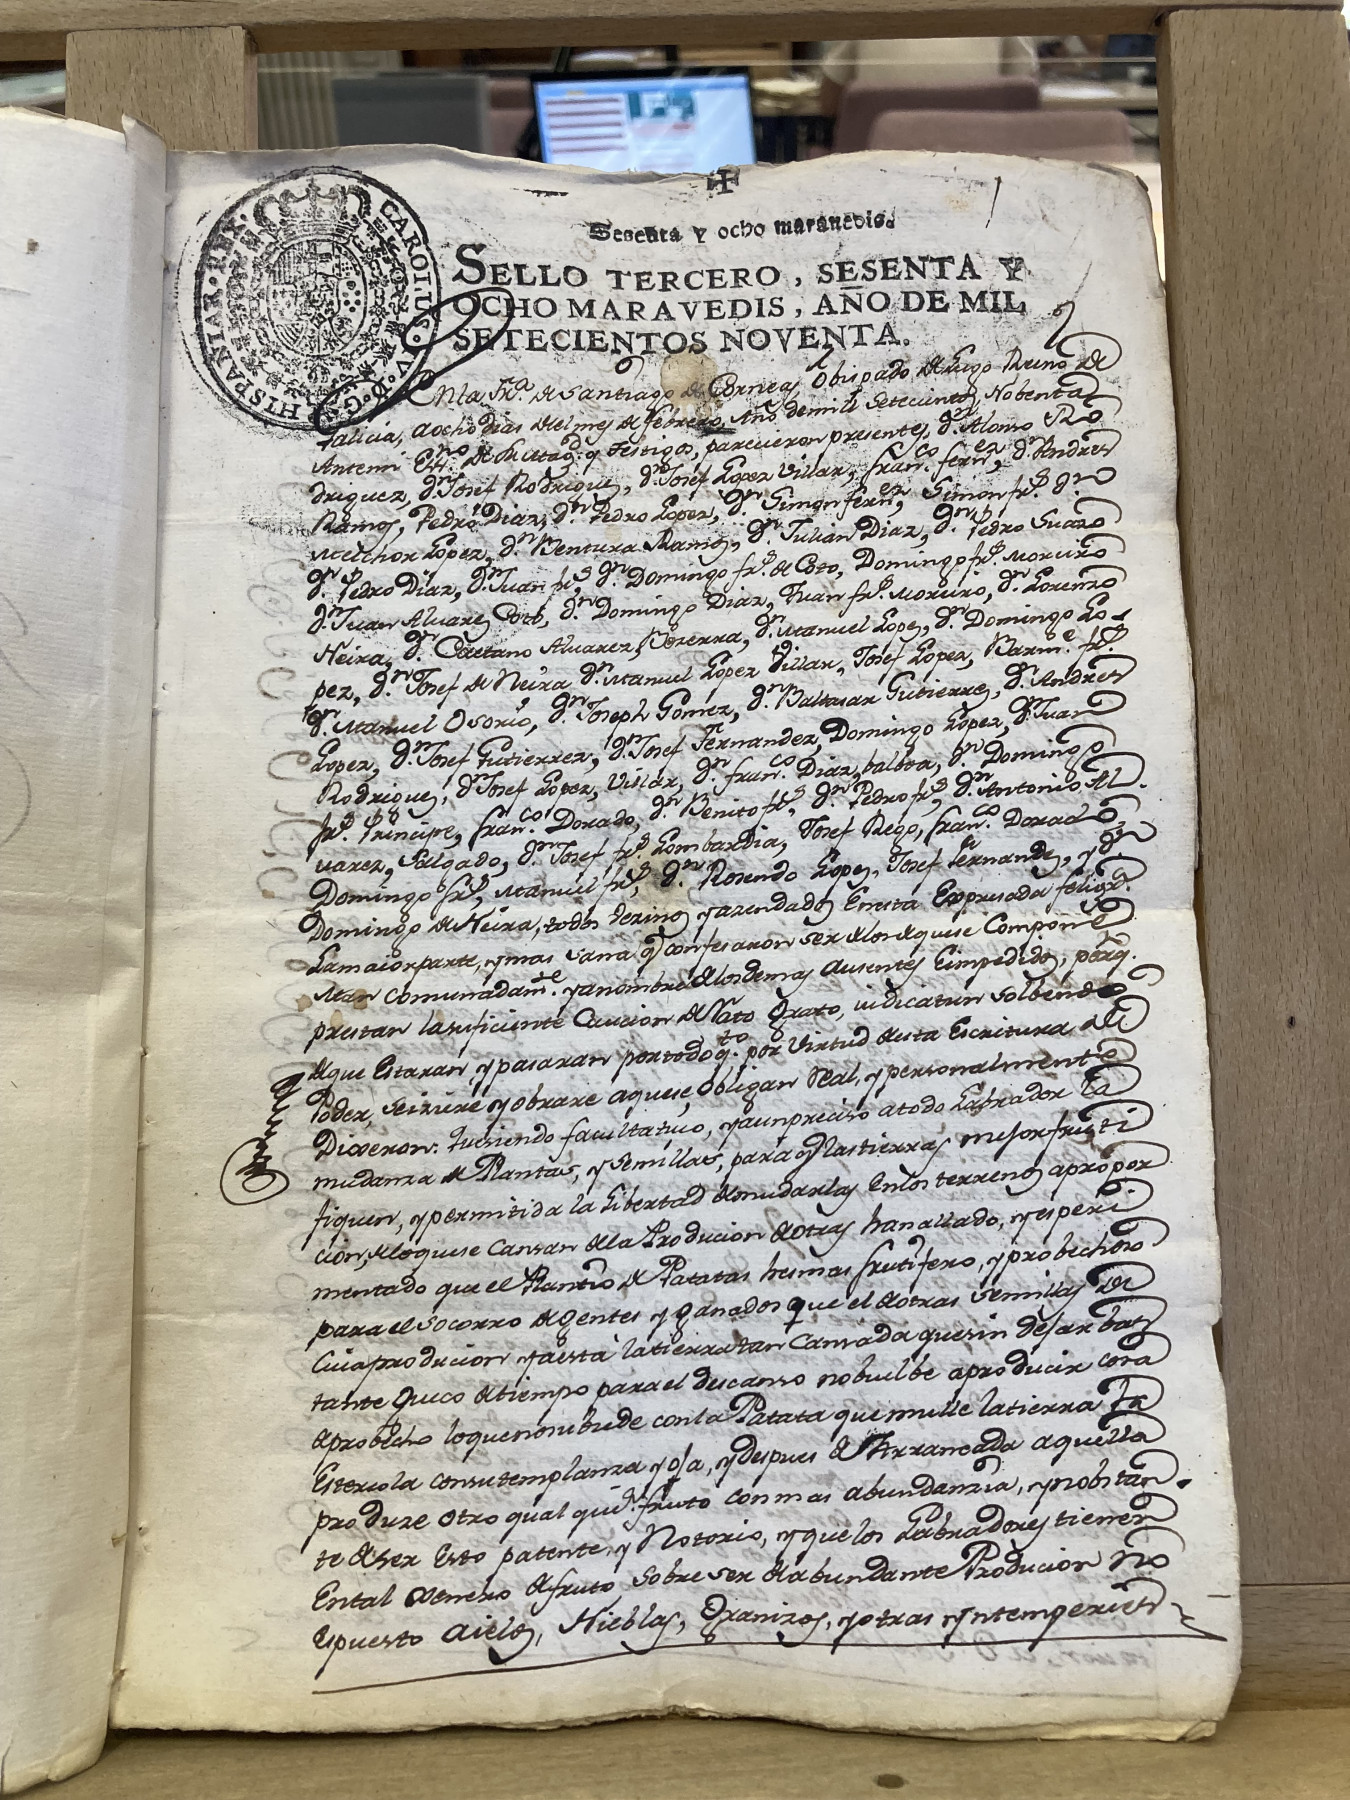 CAROLUS. IV. D. G. HISPANIAR. REX.
Sesenta y ocho maravedis.
SELLO TERCERO, SESENTA Y
OCHO MARAVEDIS, AÑO DE MIL
SETECIENTOS NOVENTA.
Enla frâ. de Santiago de Cerneas Obispado de Lugo Reino de
Galicia, aocho dias delmes de febrero, Año demill Setecientos Nobenta
Antemi Essno. de S. Mag.d y Testigos, parecieron presentes, d.n Alonso Ro
driguez, d.n Josef Rodriguez, d.n Josef Lopez Villar, fran.co fern.ez, d.n Andres
Ramos, Pedro Diaz, d.n Pedro Lopez, d.n Simon fern.ez, Simon frz. d.n
Melchor Lopez, d.n Ventura Ramos, d.n Julian Diaz, d.n Pedro Suazo
d.n Pedro Diaz, d.n Juan frz, d.n Domingo frz. de Coto, Domingo frz. Moreiro
d.n Juan Alvarez Coto, d.n Domingo Diaz, Juan frz. Moreiro, d.n Lorenzo
Neira, d.n Caetano Alvarez Bezerra, d.n Manuel Lopez, d.n Domingo Lo-
pez, d.n Josef de Neira d.n Manuel Lopez Villar, Josef Lopez, Barm.e frz.
d.n Manuel Osorio, d.n Joseph Gomez, d.n Baltasar Gutierrez, d.n Andres
Lopez, d.n Josef Gutierrez, d.n Josef Fernandez, Domingo Lopez, d.n Juan
Rodriguez, d.n Josef Lopez, Villar, d.n fran.co Diaz, balboa, d.n Domingo
frz. Principe, fran.co Dorado, d.n Benito frz, d.n Pedro frz, d.n Antonio Al-
varez, Salgado, d.n Josef frz. Lombardia, Josef Rego, fran.co Dorado,
Domingo frz, Manuel frz, d.n Rosendo Lopez, Josef Fernandez, y d.n
Domingo de Neira, todos vezinos yazendados Enesta Expresada felig.a
Lamaiorparte, ymas sana q.e confesaron ser delosdequese Compone
comunadam.te yanombre delosdemas Ausentes Eimpedidos, porq.
prestan lasuficiente Caucion de Rato Grato, iudicatun solbendo
deque Estaran, ypasaran portodo q.to por Virtud desta Escritura de
Poder, seiziere yobrare aquese obligan Real, ypersonalmente
Dixeron: Quesiendo facultativo, yaunpreciso atodo Labrador la
mudanza de Plantas, y Semillas, para q.e lastierras mejor fructi
fiquen, ypermitida la Libertad demudarlas Enlos terrenos apropor
cion, deloquese Cansan dela Producion deotras hanallado, yesperi
mentado que el Plantio de Patatas hesmas frutifero, yprobechoso
para el socorro degentes y Ganados que el deotras Semillas de
Cuiaproducion yaestà latierratan Cansada quesin dejar bas
tante Gueco detiempo para el descanso nobuelbe aproducir cosa
deprobecho loquenosubzede conla Patata que mulle latierra la
Estercola consutemplanza yoja, ydespues de Arrancada aquella
produze otro qual quie.r fruto conmas abundanzia, ynobstan-
te deser Esto patente, y Notorio, yquelos Labradores tienen
Ental Xenero defruto sobreser deabundante Producion no
Espuesto aielos, Nieblas, Granizos, yotras yntemperies